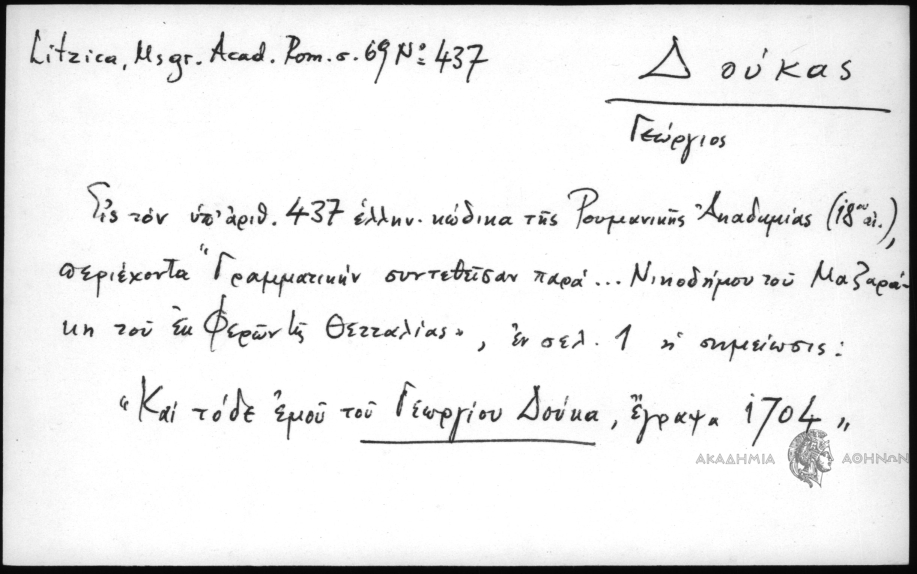 Litzica, Ms gr. Acad. Rom. σ. 69 Nº 437
Δούκας
Γεώργιος
Εἰς τὸν ὑπ' ἀριθ. 437 ἑλλην. κώδικα τῆς Ρουμανικῆς Ἀκαδημίας (18ου αἰ.),
περιέχοντα "Γραμματικὴν συντεθεῖσαν παρὰ... Νικοδήμου τοῦ Μαζαρά-
κη τοῦ ἐκ Φερῶν τῆς Θετταλίας», ἐν σελ. 1 ἡ σημείωσις:
"Καὶ τόδε ἐμοῦ τοῦ Γεωργίου Δούκα, ἔγραψα 1704"
ΑΚΑΔΗΜΙΑ ΑΘΗΝΩΝ